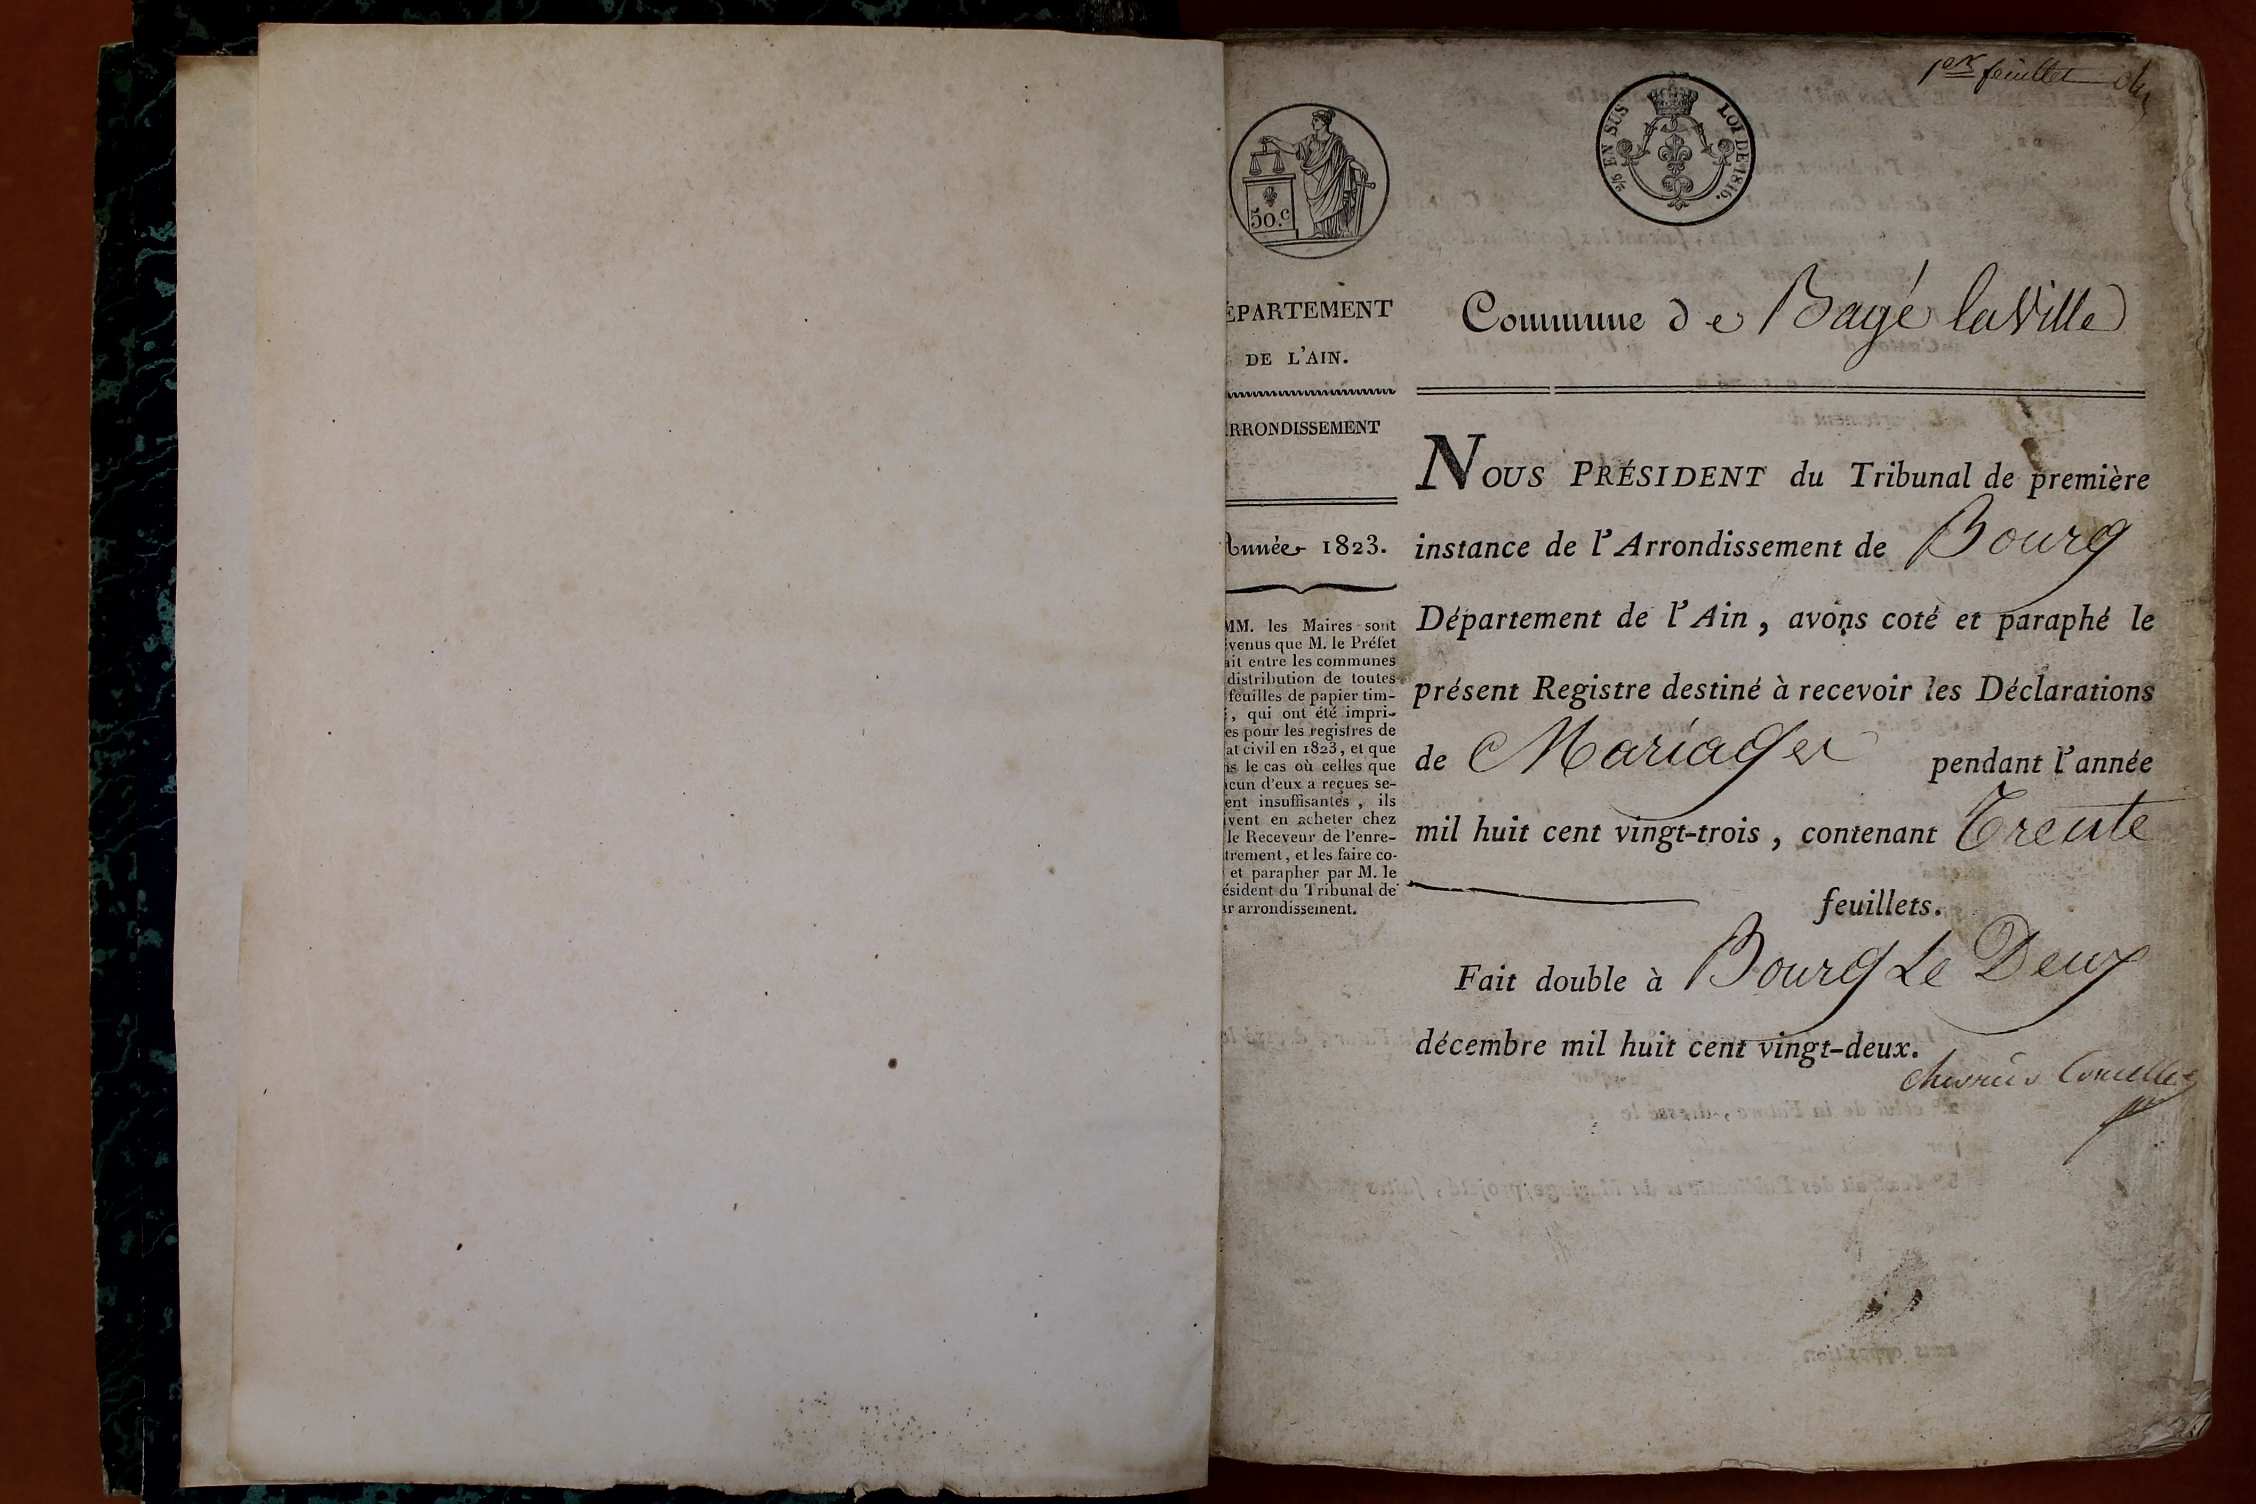 1er feuillet
50.c
5/ EN SUS LOI DE 1816.
ÉPARTEMENT
DE L'AIN.
RRONDISSEMENT
Année 1823.
MM. les Maires sont
venus que M. le Préfet
ait entre les communes
distribution de toutes
feuilles de papier tim-
, qui ont été impri-
es pour les registres de
at civil en 1823, et que
ns le cas où celles que
acun d'eux a reçues se-
ent insuffisantes, ils
ivent en acheter chez
le Receveur de l'enre-
trement, et les faire co-
et parapher par M. le
ésident du Tribunal de
ur arrondissement.
Commune de Bagé la Ville
NOUS PRÉSIDENT du Tribunal de première
instance de l'Arrondissement de Bourg
Département de l'Ain, avons coté et paraphé le
présent Registre destiné à recevoir les Déclarations
de Mariages pendant l'année
mil huit cent vingt-trois, contenant Trente
feuillets.
Fait double à Bourg Le Deux
décembre mil huit cent vingt-deux.